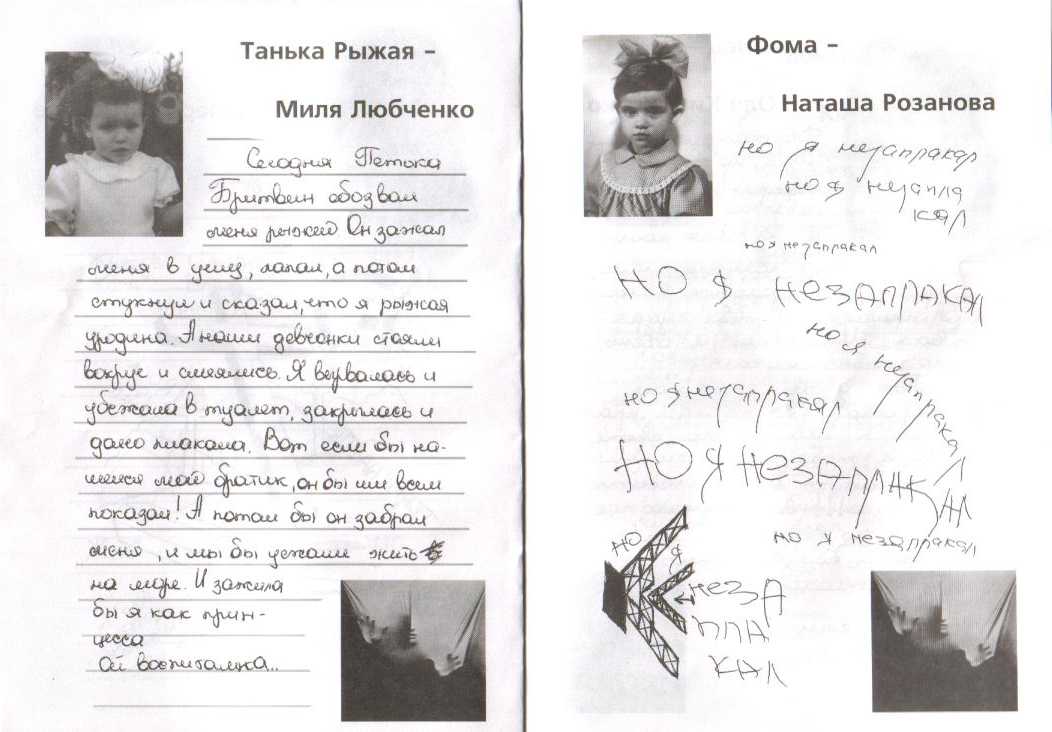 Танька Рыжая –
Миля Любченко
Сегодня Петька
Бритвин обозвал
меня рыжей Он зажал
меня в углу, лапал, а потом
стукнул и сказал, что я рыжая
уродина. А наши девчонки стояли
вокруг и смеялись. Я вырвалась и
убежала в туалет, закрылась и
долго плакала. Вот если бы на-
шелся мой братик, он бы им всем
показал! А потом бы он забрал
меня, и мы бы уехали жить
на море. И зажила
бы я как прин-
цесса
Ой воспиталка..
Фома –
Наташа Розанова
но я незапракал
но я незапла
кял
но я незапракал
НО Я НЕЗАПРАКАЛ
но я незапракал
но я незапракял
НО Я НЕЗАПЛАКАЛ
но я незапракал
НО
Я
НЕЗА
ПЛА
КАЛ